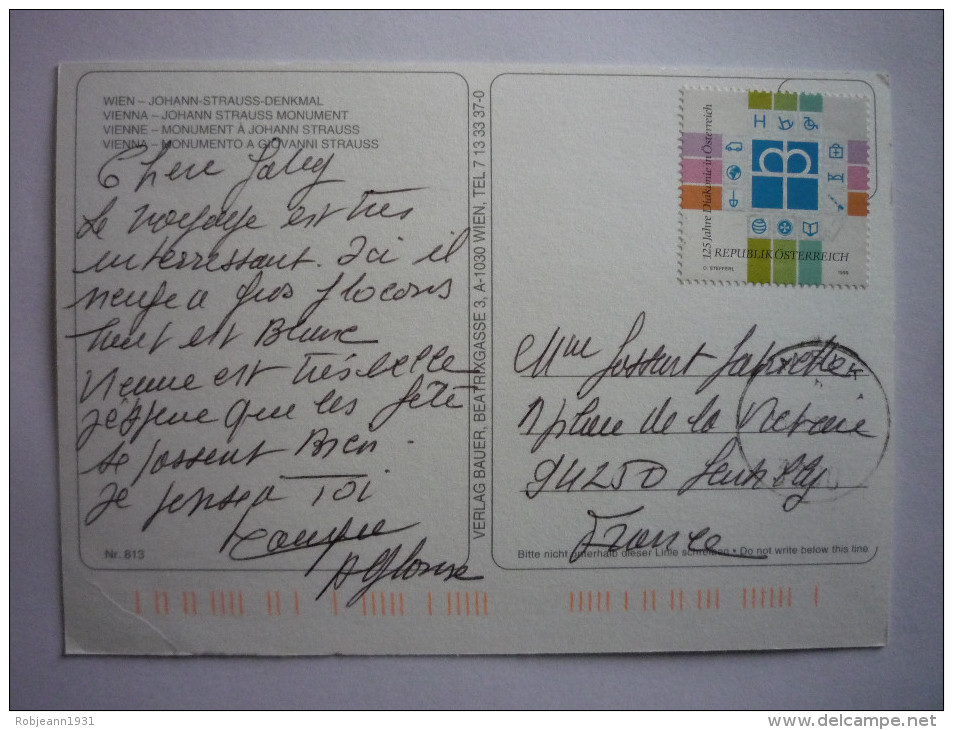 WIEN – JOHANN-STRAUSS-DENKMAL
VIENNA – JOHANN STRAUSS MONUMENT
VIENNE – MONUMENT À JOHANN STRAUSS
VIENNA – MONUMENTO A GIOVANNI STRAUSS
Chere
Le voyage est très
interressant. Ici il
neige a gros flocons
tout est Blanc
Vienne est très belle
J'espere que les fête
se passent Bien.
Je pense a Toi
Nr. 813
VERLAG BAUER, BEATRIXGASSE 3, A-1030 WIEN, TEL 7 13 33 37-0
125 Jahre Diakonie in Österreich
REPUBLIK ÖSTERREICH
1999
Mme
place de la Victoire
94250
France
Bitte nicht unterhalb dieser Linie schreiben • Do not write below this line
Robjeann1931
www.delcampe.net